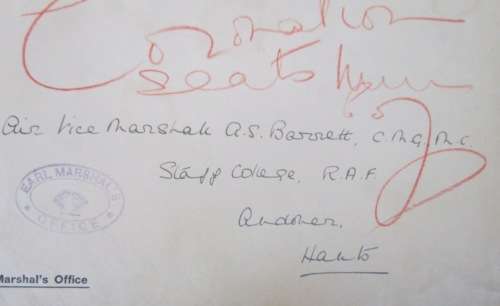 Coronation
seats
Air Vice Marshal A.S. Barratt, C.M.G., M.C.
Staff College, R.A.F.
Andover,
Hants
EARL MARSHAL'S
OFFICE
Marshal's Office